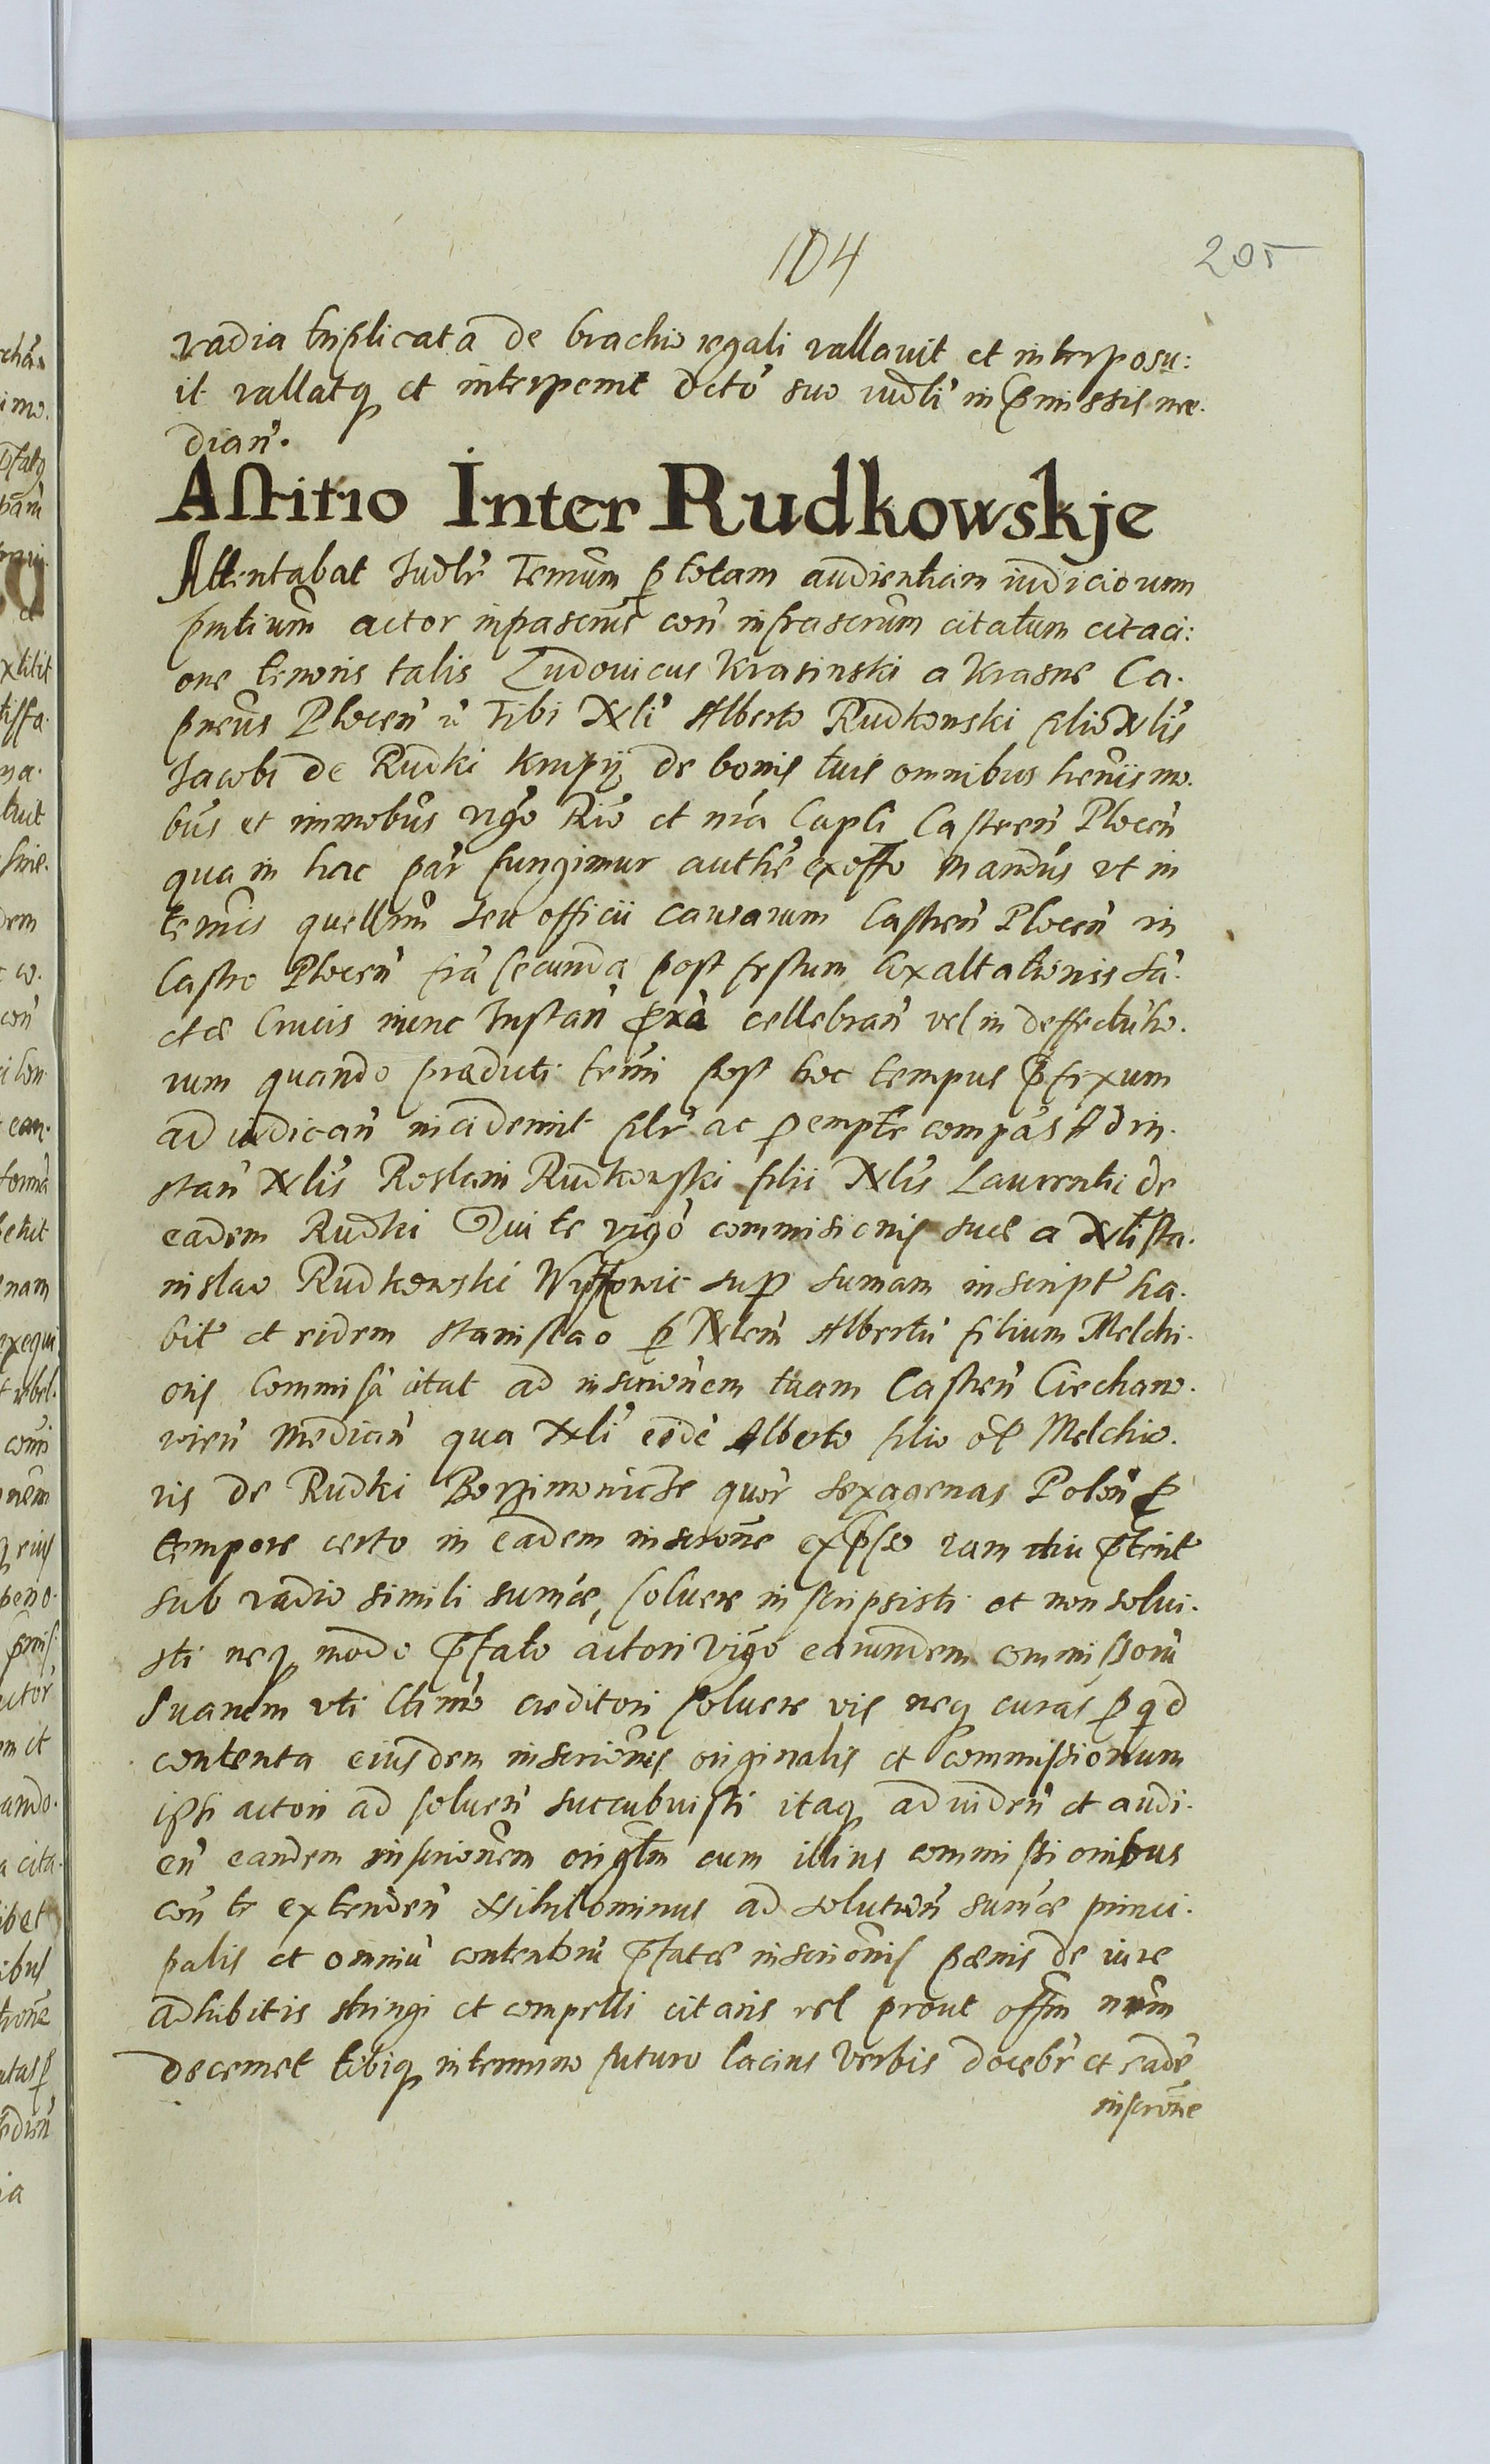 104
205
vadia triplicata de brachio regali vallavit et interposu:
it vallatq et interponit dcto suo iudli in pmissis me.
dian.
Astitio Inter Rudkowskje
Attentabat Iudlr Termum p totam audientiam iudiciorum
pntium actor inpascrus con infrascrum citatum citaci:
one tenoris talis Ludovicus Krasinski a Krasne Ca.
pneus Plocen Tibi Nli Alberto Rudkowski filio Nlis
Jacobi de Rudki de bonis tuis omnibus
bus et immobus vigo Rio et nra Capli Castren Plocen
qua in hac par fungimur authe ex offo mandus vt in
termis querllrum seu officii causarum Castren Plocen in
Castro Plocen fria secunda post festum Exaltationis Sa.
ctae Crucis nunc Instan pxa cellebran vel in deffectu ho.
rum quando praducti trmi post hoc tempus pfixum
ad iudican inciderint plr ac pempte compas Ad in.
stan Nlis Roslani Rudkowski filii Nlis Laurentii de
eadem Rudki Qui te vigo commisionis suae a Nli Sta.
nislao Rudkowski sup sumam inscript ha.
bit et eidem Stanislao p Nlem Albertu filium Melchi.
oris Commisa citat ad inscrionem tuam Castren Ciechano.
vien median qua Nli eide Alberto filio ol Melchio.
ris de Rudki quor sexagenas Polon p
tempore certo in eadem inscrone expso iam diu ptent
sub vadio simili sumae, solvere inscripsisti et non solui.
sti neq modo pfato actori vigo earumdem commissonu
suarum vti ltimo creditori solvere vis neq curas p qd
contenta eiusdem inscrionis originalis et commissionum
ipsi actori ad solven succubuisti itaq ad viden et audi.
en eandem inscrionem origlem cum illius commissionibus
con te extenden Nihilominus ad soluten sumae princi.
palis et omniu contentoru pfatae inscrionis paenis de iure
adhibitis stringi et compelli citaris vel prout offm nrum
decernet tibiq in termino futuro lacius verbis docebr et eade
inscrone